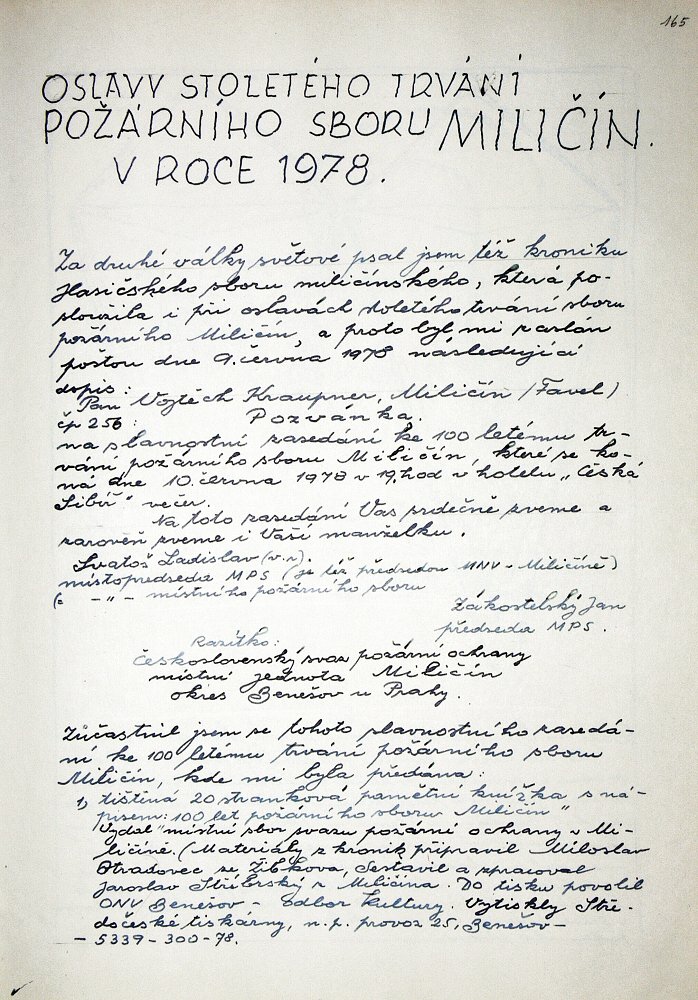 165
OSLAVY STOLETÉHO TRVÁNÍ
POŽÁRNÍHO SBORU MILIČÍN.
V ROCE 1978.
Za druhé války světové psal jsem též kroniku
Hasičského sboru miličínského, která po-
sloužila i při oslavách stoletého trvání sboru
požárního Miličín, a proto byl mi zaslán
poštou dne 9. června 1978 následující
dopis:
Pan Vojtěch Kraupner, Miličín /Favel)
čp 256:
Pozvánka.
na slavnostní zasedání ke 100 letému tr-
vání požárního sboru Miličín, které se ko-
ná dne 10. června 1978 v 19, hod v hotelu „Česká
Sibiř" večer.
Na toto zasedání Vás srdečně zveme a
zároveň zveme i Vaši manželku.
Svatoš Ladislav (v.r).
místopředseda MPS (je též předsedou MNV - Miličíně)
(= - „ - místního požárního sboru
Zákostelský Jan
předseda MPS.
Razítko:
Československý svaz požární ochrany
místní jednota Miličín
okres Benešov u Prahy.
Zúčastnil jsem se tohoto slavnostního zasedá-
ní ke 100 letému trvání požárního sboru
Miličín, kde mi byla předána:
1, tištěná 20 stránková pamětní knížka s ná-
pisem: 100 let požárního sboru Miličín"
Vydal "místní sbor svazu požární ochrany v Mi-
ličíně. (Materiály z kronik připravil Miloslav
Otradovec ze Žibkova, Sestavil a zpracoval
Jaroslav Stříberský z Miličína. Do tisku povolil
ONV Benešov - Odbor kultury. Vytiskly Stře-
dočeské tiskárny, n.p. provoz 25, Benešov -
- 5339 - 300 - 78.